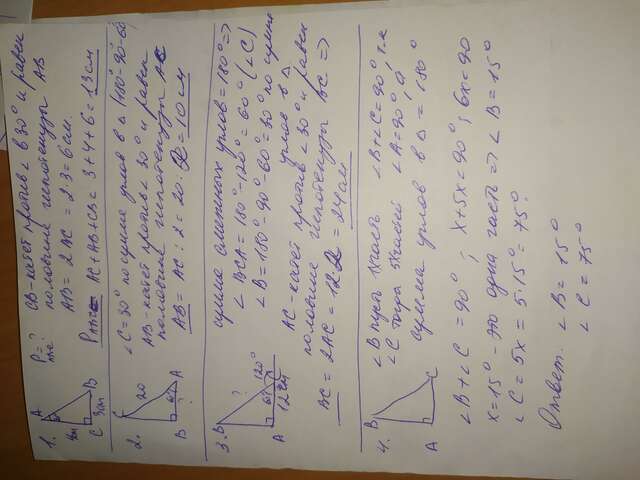 1. A P=? CB-катет против < в 30° и равен
4см △ половине гипотенузы AB
C 3см B AB = 2AC = 2·3 = 6 см.
P△ = AC+AB+CB = 3+4+6 = 13 см
2. C 20 <C=30° по сумме углов в △ (180°-90°-60°)
AB-катет против < 30° и равен
половине гипотенузы AC
B ? A AB = AC : 2 = 20 : 2 = 10 см
3. B ? сумма смежных углов = 180° =>
A 12см 120° < BCA = 180°-120° = 60° (<C)
<B = 180°-90°-60° = 30° по сумме
углов в △
AC-катет против < 30° и равен
половине гипотенузы BC =>
BC = 2AC = 12·2 = 24 см
4. B <B пусть 1часть <B+<C=90°, т.к
<C тогда 5частей <A=90°, а
A C сумма углов в △ = 180°
<B+<C = 90° ; x+5x=90° ; 6x=90
x=15° - это одна часть => <B=15°
<C=5x = 5·15°= 75°
Ответ. <B=15°
<C=75°